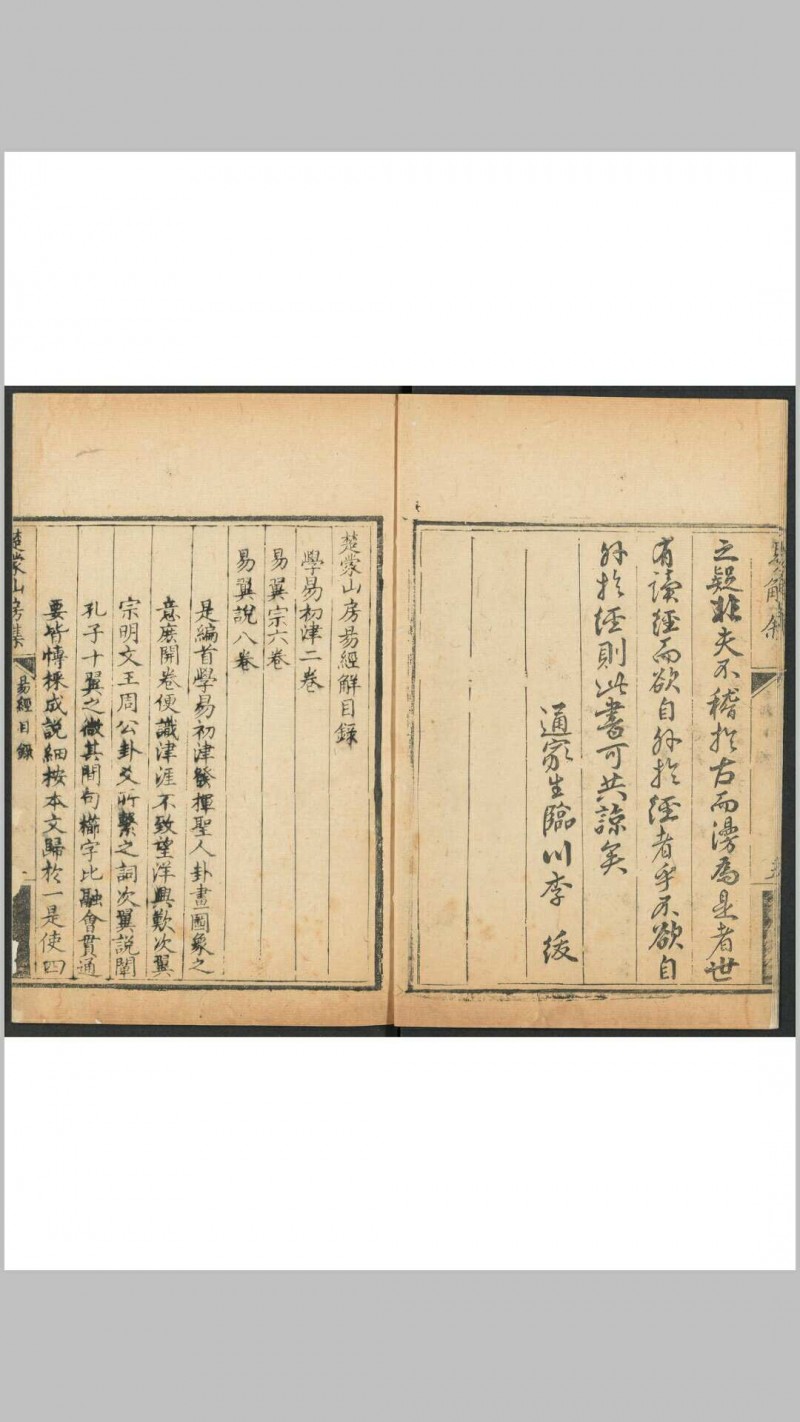 之疑非夫不稽扵古而漫為是者世
有讀經而欲自外扵經者乎不欲自
外扵經則此書可共諒矣
通家生臨川李紱
楚蒙山房易經解目錄
學易初津二卷
易翼宗六卷
易翼說八卷
是編首學易初津發揮聖人卦畫圖象之
意庶開卷便識津涯不致望洋興歎次翼
宗明文王周公卦爻所繫之詞次翼說闡
孔子十翼之微其間句櫛字比融會貫通
要皆博採成說細按本文歸於一是使四
楚蒙山房集
易經目錄
一